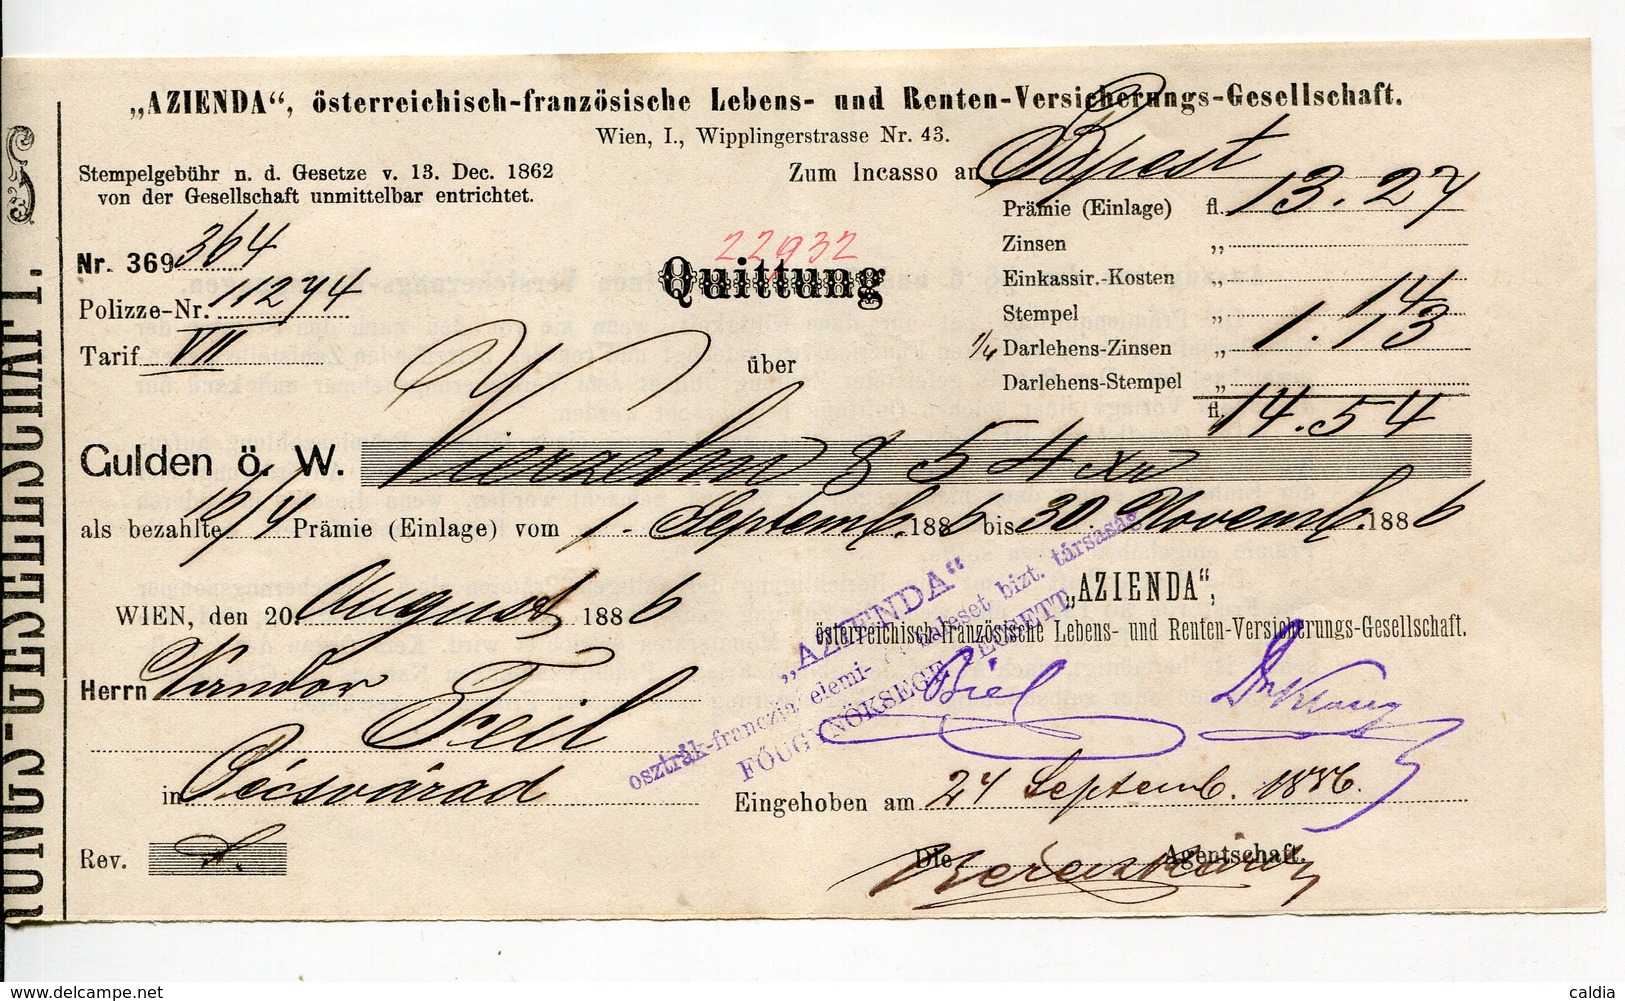 „AZIENDA“, österreichisch-französische Lebens- und Renten-Versicherungs-Gesellschaft.
Wien, I., Wipplingerstrasse Nr. 43.
Stempelgebühr n. d. Gesetze v. 13. Dec. 1862
von der Gesellschaft unmittelbar entrichtet.
Zum Incasso an Bpest
Prämie (Einlage) fl. 13.27
Zinsen „
Einkassir.-Kosten
Stempel „ 14
1/4 Darlehens-Zinsen „ 1.13
Darlehens-Stempel „
fl. 14.54
Nr. 369 364
Polizze-Nr. 11274
Tarif VII
22932
Quittung
über
Gulden ö. W. Vierzehn & 54 xr
als bezahlte 16/4 Prämie (Einlage) vom 1. Septemb. 1886 bis 30. Novemb. 1886
WIEN, den 20. August 1886
„AZIENDA“,
österreichisch-französische Lebens- und Renten-Versicherungs-Gesellschaft.
„AZIENDA“
osztrák-franczia elemi- és baleset bizt. társaság
FŐÜGYNÖKSÉGE PÉCSETT
Herrn Sandor Feil
in Pécsvárad
Eingehoben am 24 Septemb. 1886.
Rev.
Die Agentschaft.
RUNGS-GESELLSCHAFT.
delcampe.net
caldia